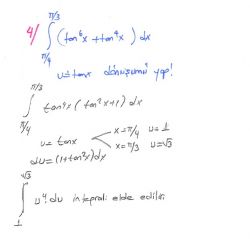 4/ ∫_{π/4}^{π/3} (tan⁶x + tan⁴x) dx
u=tanx dönüşümü yap!
∫_{π/4}^{π/3} tan⁴x (tan²x+1) dx
u = tanx < x=π/4 u=1
x=π/3 u=√3
du=(1+tan²x)dx
∫_{1}^{√3} u⁴.du integrali elde edilir